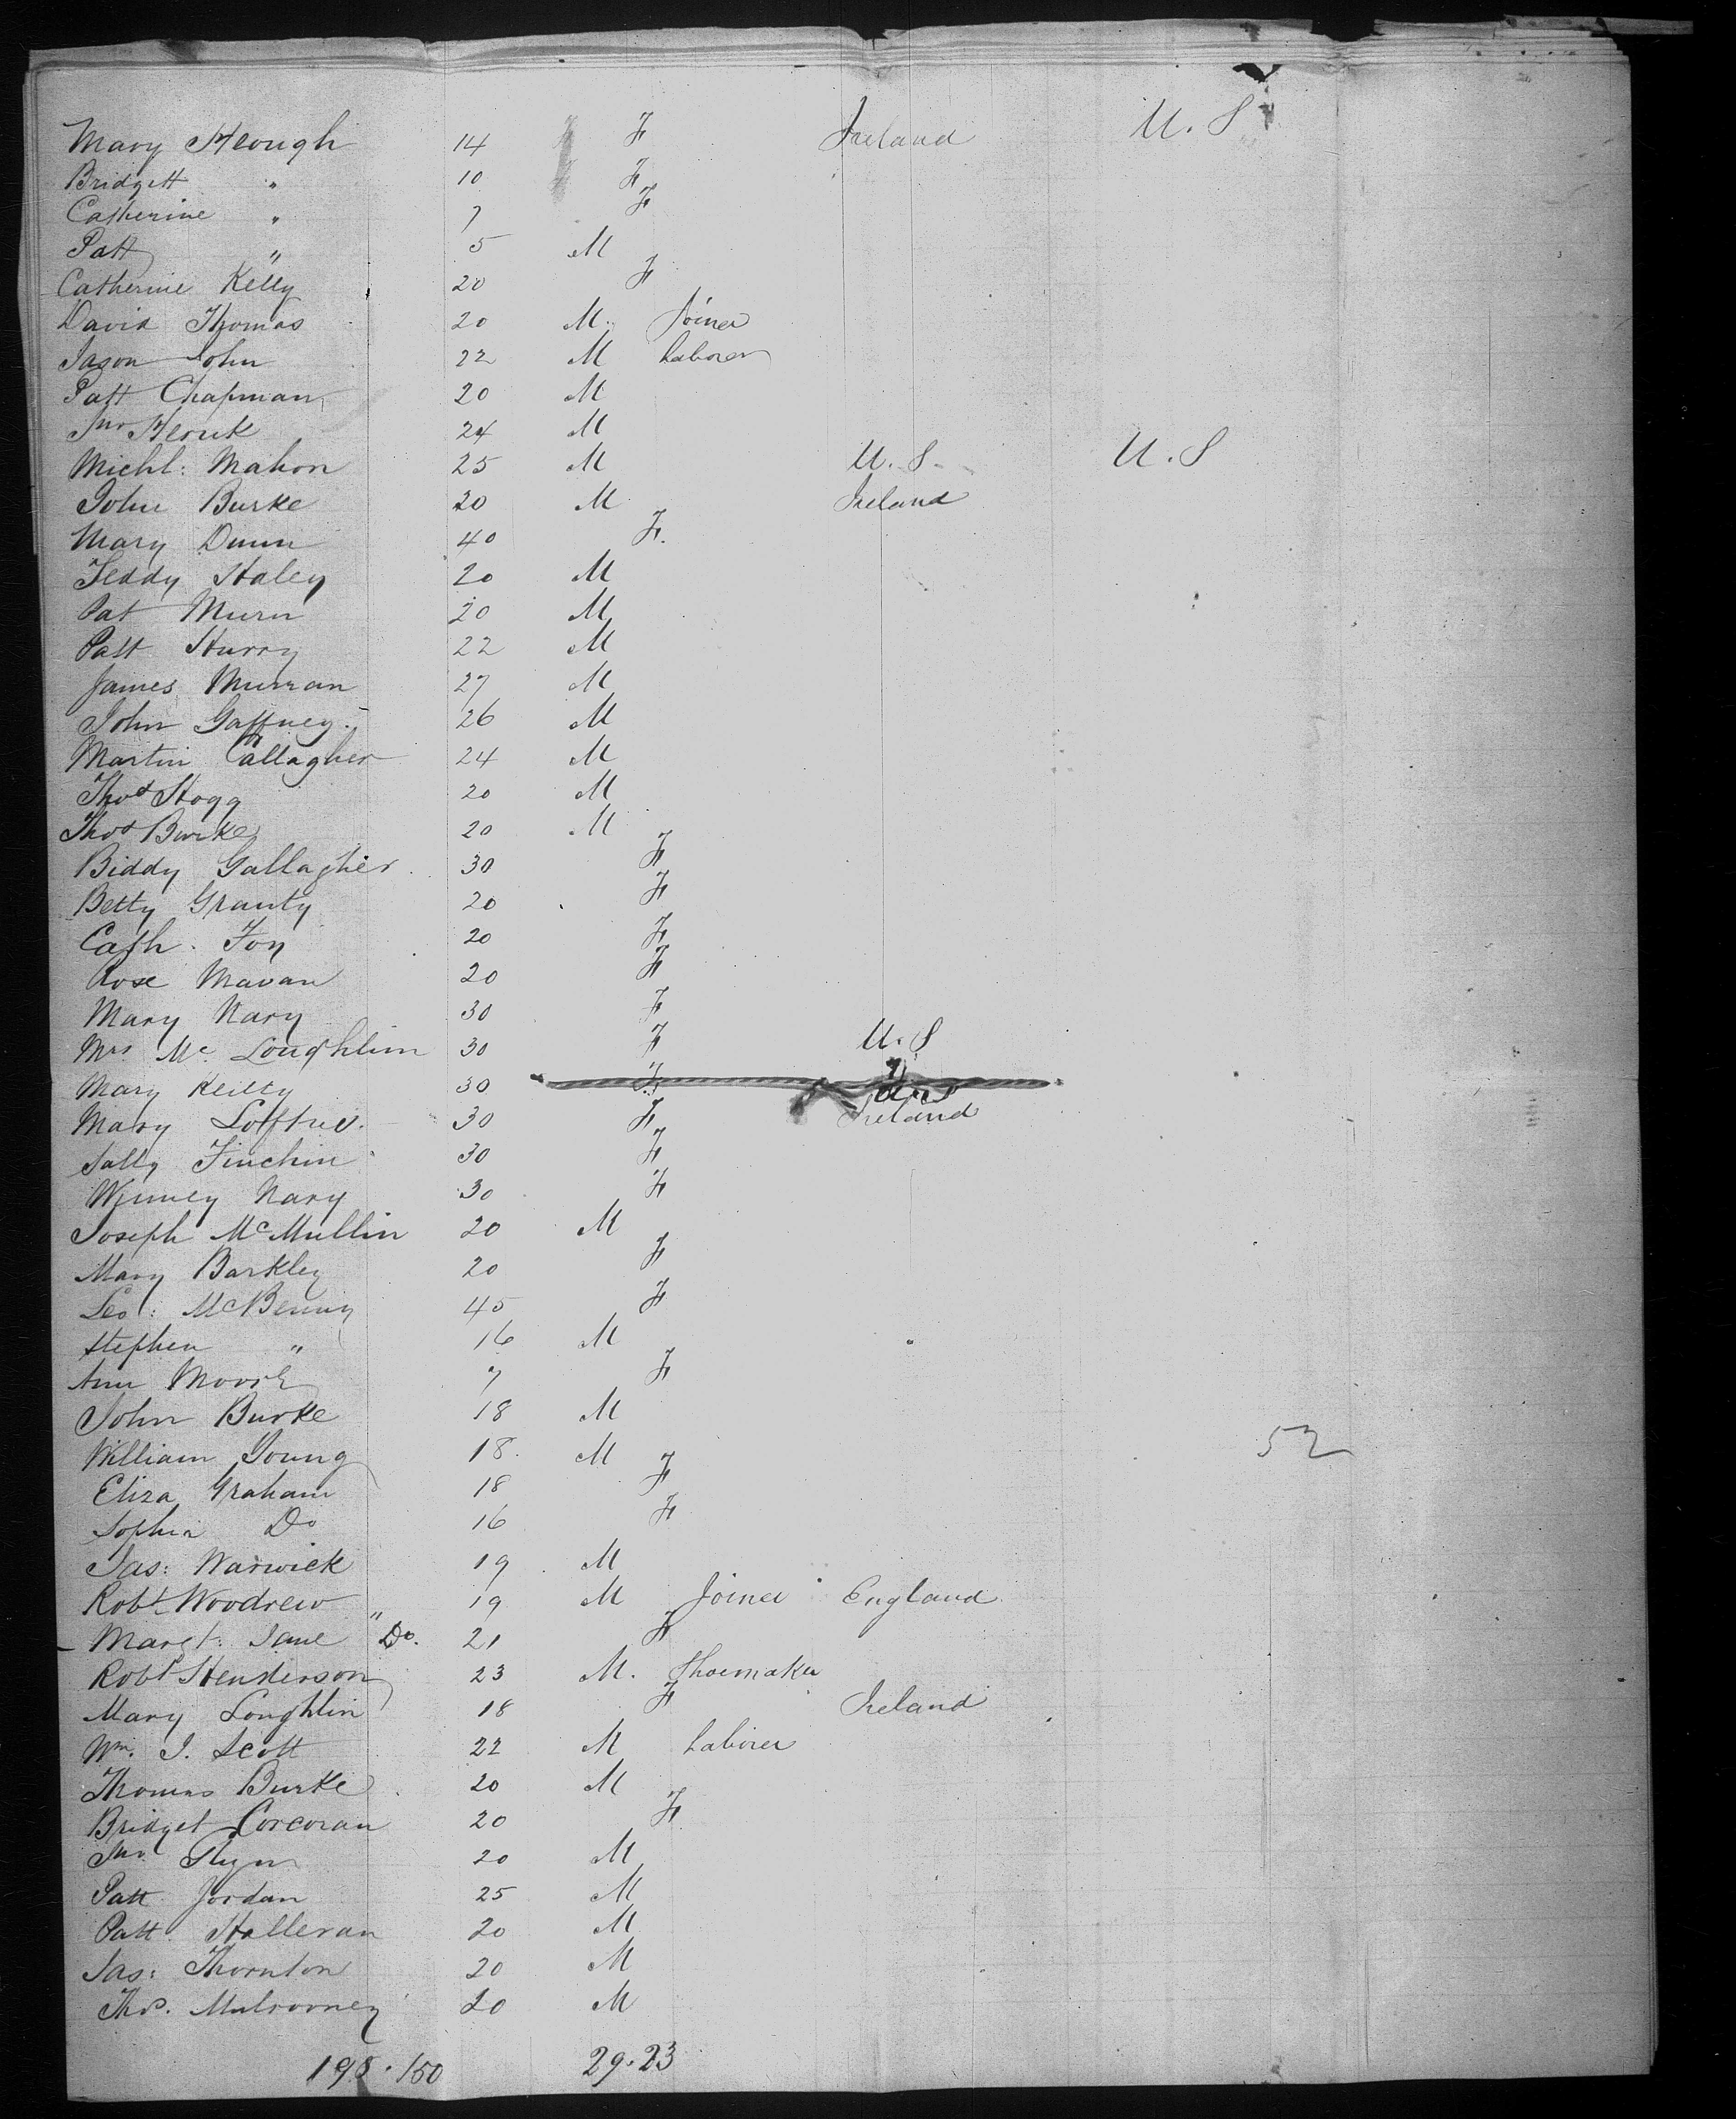 Mary Keough 14 F Ireland U.S
Bridgett " 10 F
Catherine " 7 F
Patt " 5 M
Catherine Kelly 20 F
David Thomas 20 M. Joiner
Jason John 22 M Laborer
Patt Chapman 20 M
Jno 24 M
Michl: Mahon 25 M U.S. U.S
John Burke 20 M Ireland
Mary Dunn 40 F.
Teddy Haley 20 M
Pat Murn 20 M
Patt Hurry 22 M
James Murran 27 M
John Gaffney. 26 M
Martin Gallagher 24 M
Thos Hogg 20 M
Thos Burke 20 M
Biddy Gallagher 30 F
Betty Granty 20 F
Cath. Foy 20 F
Rose Mavan 20 F
Mary Nary 30 F
Mrs Mc Loughlim 30 F U.S
Mary Keilty 30 F
Mary Loftus. 30 F Ireland
Sally Finchin 30 F
Winney Nary 30 F
Joseph McMullin 20 M
Mary Barkley 20 F
Leo: McBenny 45 F
Stephen " 16 M
Ann Moore 7 F
John Burke 18 M
William Young 18. M 52
Eliza Graham 18 F
Sophia Do 16 F
Jas: Warwick 19 M
Robt Woodrew 19 M Joiner England
Margt: Jane " Do. 21 F
Robt Henderson 23 M. Shoemaker
Mary Loughlin 18 F Ireland
Wm. J. Scott 22 M Laborer
Thomas Burke 20 M
Bridget Corcoran 20 F
Jno Flynn 20 M
Patt Jordan 25 M
Patt. Halleran 20 M
Jas: Thornton 20 M
Thos. Mulrooney 20 M
198.150 29.23